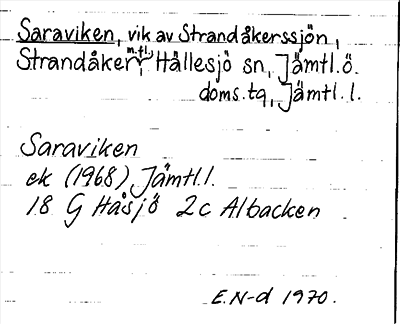 Saraviken, vik av Strandåkerssjön,
Strandåker, m.fl., Hällesjö sn, Jämtl.ö.
doms.tq, Jämtl. l.
Saraviken
ek (1968) Jämtl.l.
18 G Håsjö 2c Albacken
E.N-d 1970.